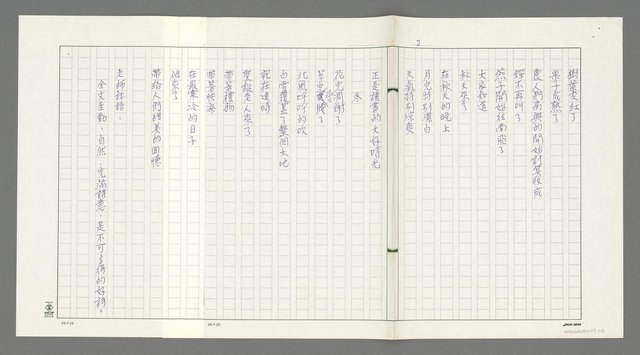 2
樹葉變紅了
果子成熟了
農人們高興的開始計算收成
蟬不再叫了
燕子開始往南飛了
大家知道
秋天來了
在秋天的晚上
月光特別潔白
天氣特別涼爽
正是讀書的大好時光
冬
花兒凋謝了
草也變黃了
北風呼呼的吹
白雪覆蓋了整個大地
就在這時
聖誕老人來了
帶著禮物
帶著快樂
在最寒冷的日子
他來了
帶給人們甜美的回憶
老師評語:
全文生動、自然、充滿詩意、是不可多得的好詩。
20×25
20×25